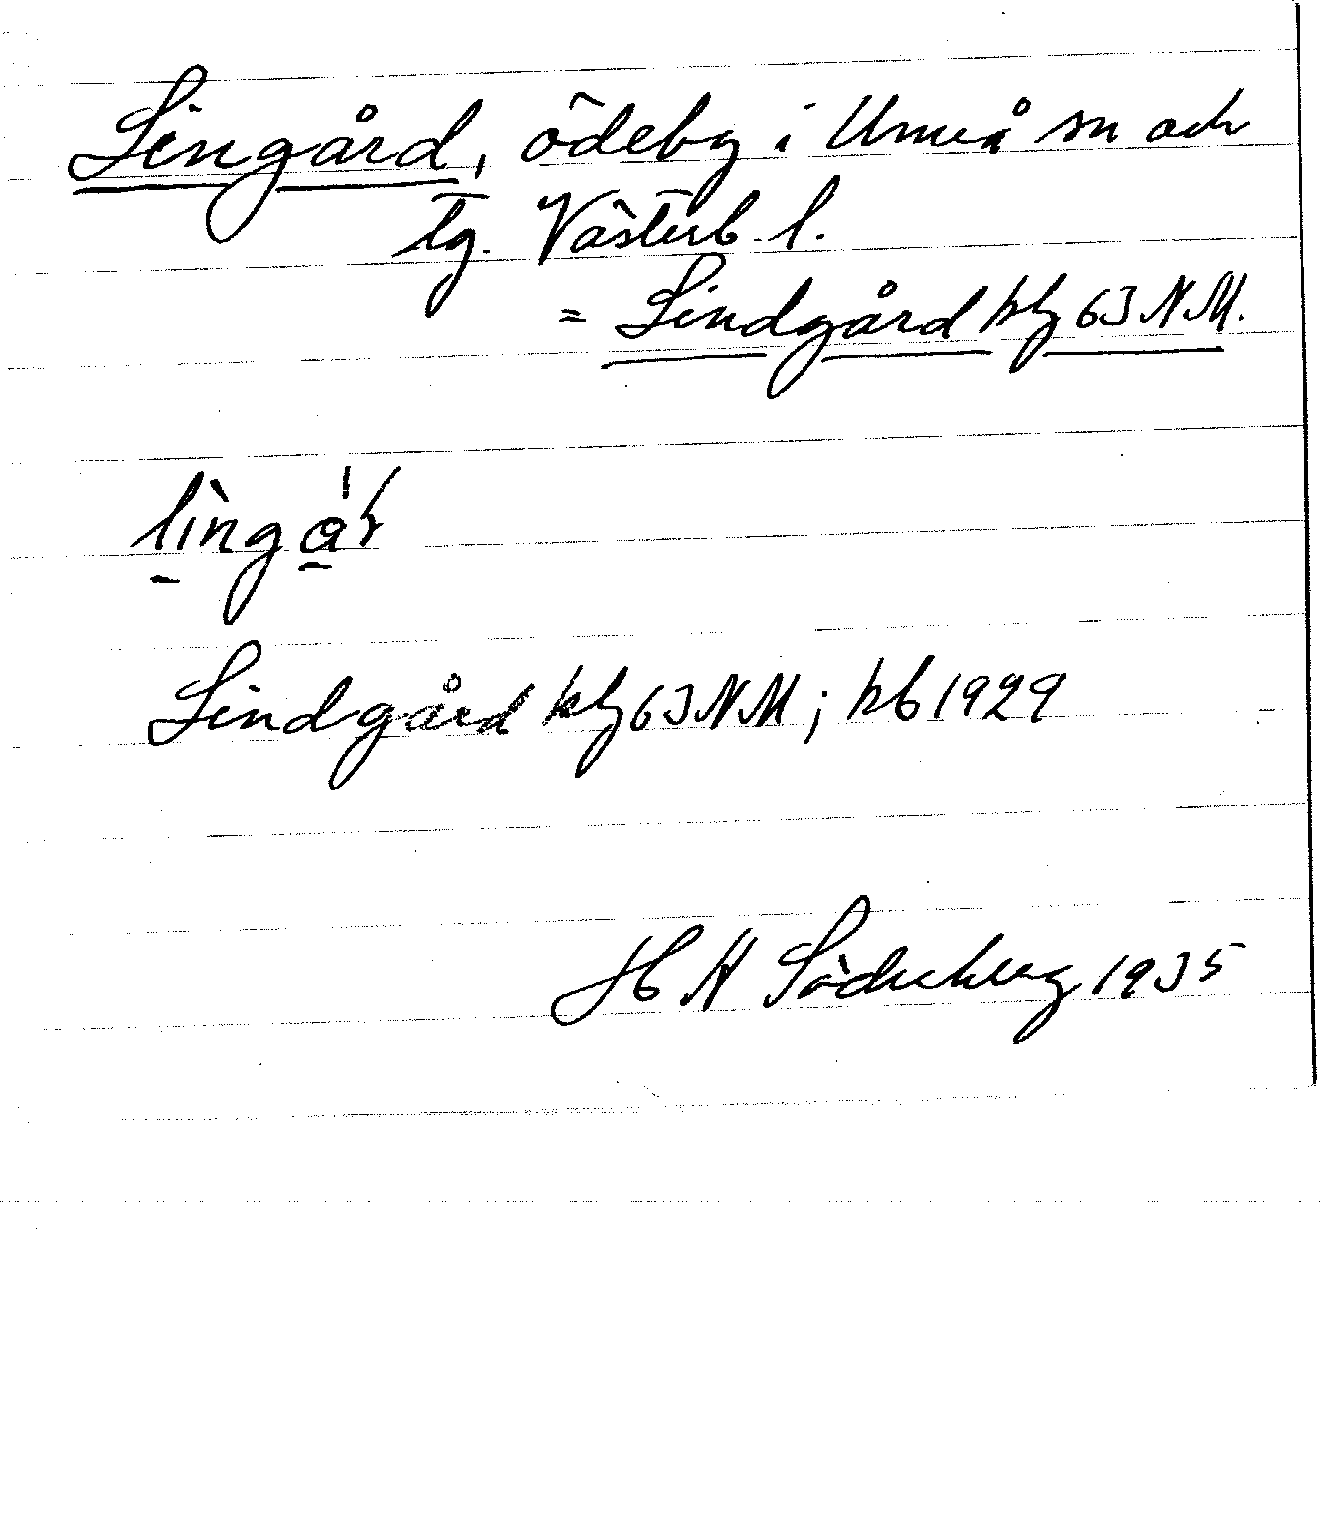 Lingård, ödeby i Umeå sn och
tg. Västerb. l.
= Lindgård kbl 63 NM.
Lindgård kbl 63 NM; kb 1929
H H Söderberg 1935